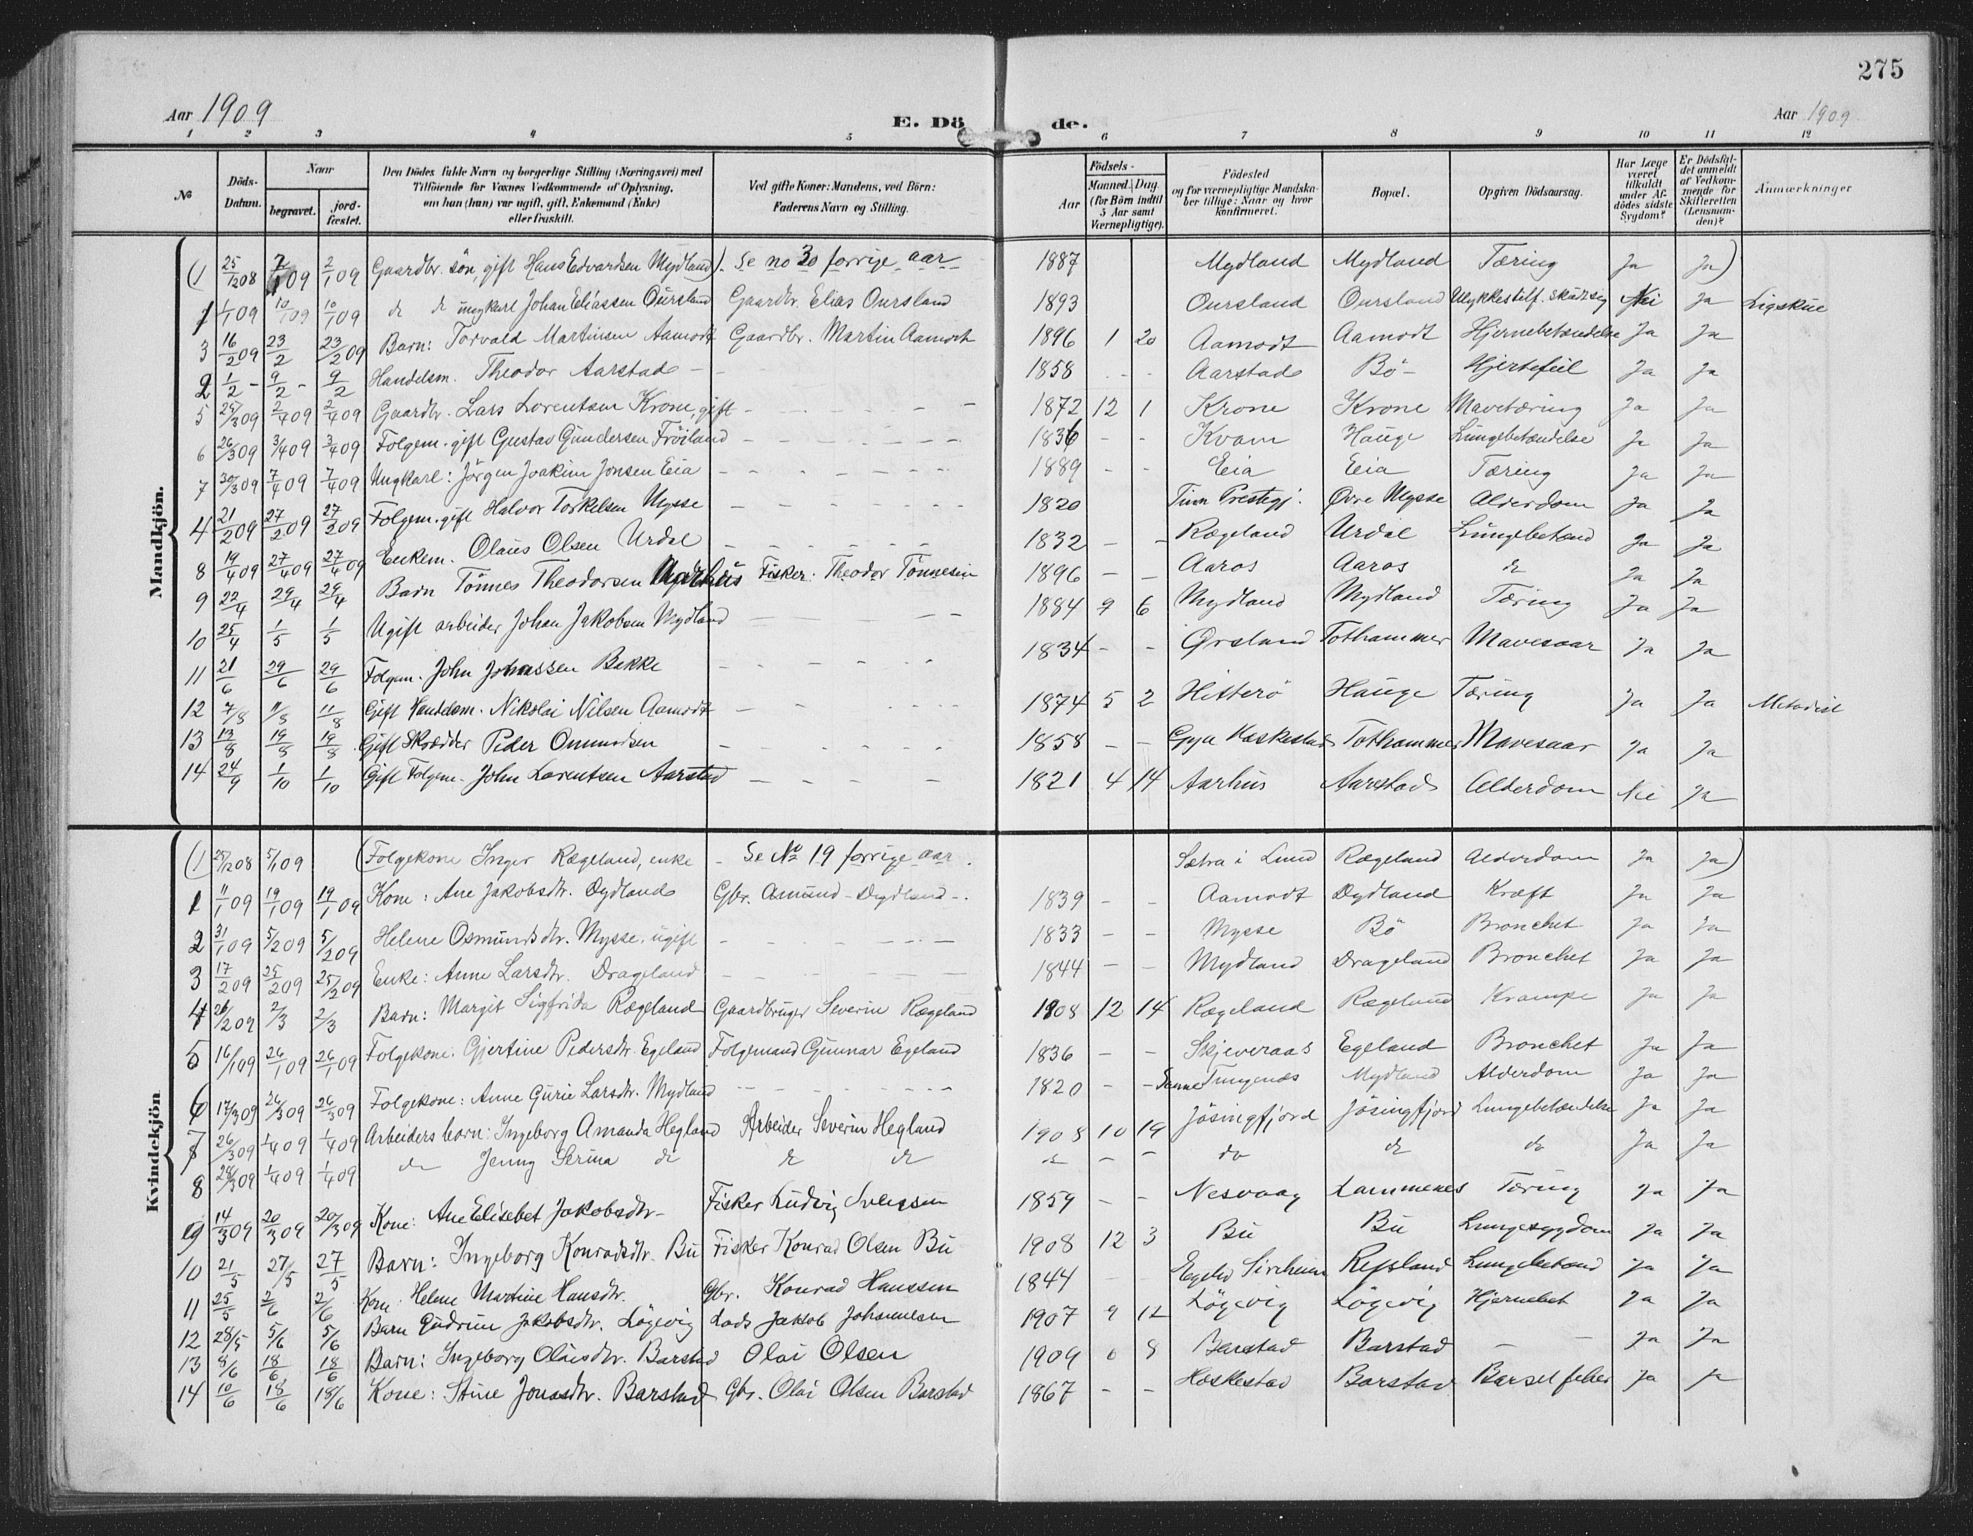 275
Aar 1909 E. Dö de. Aar 1909
1 2 3 4 5 6 7 8 9 10 11 12
No Döds-Datum. Naar begravet. jord-fæstet. Den Dödes fulde Navn og borgerlige Stilling (Næringsvei) med Tilföiende for Voxnes Vedkommende af Oplysning, om han (hun) var ugift, gift, Enkemand (Enke) eller fraskilt. Ved gifte Koner: Mandens, ved Börn: Faderens Navn og Stilling. Födsels- Aar Maaned. Dag. (for Börn indtil 5 Aar samt Værnepligtige). Födested og for værnepligtige Mandskaber tillige: Naar og hvor konfirmeret. Bopæl. Opgiven Dödsaarsag. Har Læge været tilkaldt under Afdödes sidste Sygdom? Er Dödsfaldet anmeldt af Vedkommende for Skifteretten (Lensmanden)? Anmærkninger
Mandkjön.
(1 25/12 08 2/1 09 2/1 09 Gaardbr. sön, gift Hans Edvardsen Mydland). Se no 30 forrige aar 1887 Mydland Mydland Tæring Ja Ja)
1 1/1 09 10/1 09 10/1 09 do do ungkarl Johan Eliassen Oursland Gaardbr. Elias Oursland 1893 Oursland Oursland Ulykkestilf. skudt sig Nei Ja Ligskue
3 16/2 09 23/2 23/2 09 Barn: Torvald Martinsen Aamodt Gaardbr. Martin Aamodt 1896 1 20 Aamodt Aamodt Hjernebetændelse Ja Ja
2 1/2 - 9/2 - 9/2 Handelsm. Theodor Aarstad - 1858 - - Aarstad Bö - Hjertefeil Ja Ja
5 25/3 09 2/4 09 2/4 09 Gaardbr. Lars Lorentsen Krone, gift 1872 12 1 Krone Krone Mavetæring Ja Ja
6 26/3 09 3/4 09 3/4 09 Folgem. gift Gustav Gundersen Fröiland 1836 - - Kvam Hauge Lungebetændelse Ja Ja
7 30/3 09 7/4 09 7/4 09 Ungkarl: Jörgen Joakim Jonsen Eia 1889 - - Eia Eia Tæring Ja Ja
4 21/2 09 27/2 09 27/2 09 Folgem. gift Halvor Torkelsen Mysse 1820 Tinn Prestegj. Øvre Mysse Alderdom Ja Ja
8 19/4 09 27/4 09 27/4 09 Enkem. Olaus Olsen Urdal 1832 - - Rægeland Urdal Lungebetænd Ja Ja
9 22/4 29/4 29/4 Barn Tönnes Theodorsen Fisker: Theodor Tönnesen 1896 - - Aaros Aaros do Ja Ja
10 25/4 1/5 1/5 Ugift arbeider Johan Jakobsen Mydland 1884 9 6 Mydland Mydland Tæring Ja Ja
11 21/6 29/6 29/6 Folgem. John Johnassen Bakke 1834 - - Ørsland Tothammer Mavesaar Ja Ja
12 7/8 11/8 11/8 Gift Handelsm. Nikolai Nilsen Aamodt 1874 5 2 Hitterö Hauge Tæring Ja Ja Metodist
13 13/8 19/8 19/8 Gift Skrædder Peder Ommundsen 1858 - - Gya Heskestad Tothammer Mavesaar Ja Ja
14 24/9 1/10 1/10 Gift Folgem. John Lorentsen Aarstad 1821 4 14 Aarhus Aarstad Alderdom Nei Ja
Kvindekjön
(1 25/12 08 5/1 09 (Folgekone Inger Rægeland, enke - Se No 19 forrige aar. Sætra i Lund Rægeland Alderdom Ja Ja)
1 11/1 09 19/1 09 19/1 09 Kone: Ane Jakobsdtr. Dydland Gbr. Amund Dydland 1839 - - Aamodt Dydland Kræft Ja Ja
2 31/1 09 5/2 09 5/2 09 Helene Osmundsdtr. Mysse, ugift 1833 - - Mysse Bö Bronchet Ja Ja
3 17/2 09 25/2 09 25/2 09 Enke: Anne Larsdtr. Drageland 1844 - - Mydland Drageland Bronchet Ja Ja
4 26/2 09 2/3 2/3 Barn: Margit Sigfrida Rægeland Gaardbruger Severin Rægeland 1908 12 14 Rægeland Rægeland Krampe Ja Ja
5 16/1 09 26/1 09 26/1 09 Folgekone. Gjertine Pedersdtr. Egeland Folgemand Gunnar Egeland 1836 - - Skjeveraas Egeland Bronchet Ja Ja
6 17/3 09 26/3 09 26/3 09 Folgekone: Anne Gurie Larsdtr. Mydland 1820 - - Tungenæs Mydland Alderdom Ja Ja
7 26/3 09 1/4 09 1/4 09 Arbeiders barn: Ingeborg Amanda Hegland Arbeider Severin Hegland 1908 10 19 Jösingfjord Jösingfjord Lungebetændelse Ja Ja
8 28/3 09 1/4 09 1/4 09 do Jenny Serina do do do do - - do do do Ja Ja
9 14/3 09 20/3 09 20/3 09 Kone: Ane Elisebet Jakobsdtr. Fisker Ludvig Svensen 1859 - - Nesvaag Tæring Ja Ja
10 21/5 27/5 27/5 Barn: Ingeborg Konradsdtr. Bu Fisker Konrad Olsen Bu 1908 12 3 Bu Bu Lungesygdom Ja Ja
11 25/5 2/6 2/6 Kone. Helene Martine Hansdtr. Gbr. Konrad Hanssen 1844 Refsland Lungebetænd Ja Ja
12 28/5 5/6 5/6 Barn Gudrun Jakobsdtr. Lögevig Lods Jakob Johannesen 1907 9 12 Lögevig Lögevig Hjernebet Ja Ja
13 8/6 18/6 18/6 Barn: Ingeborg Olaisdtr. Barstad Olai Olsen 1909 0 8 Barstad Barstad - Ja Ja
14 10/6 18/6 18/6 Kone: Stine Jonasdtr. Barstad Gbr. Olai Olsen Barstad 1867 - - Heskestad Barstad Barselfeber Ja Ja